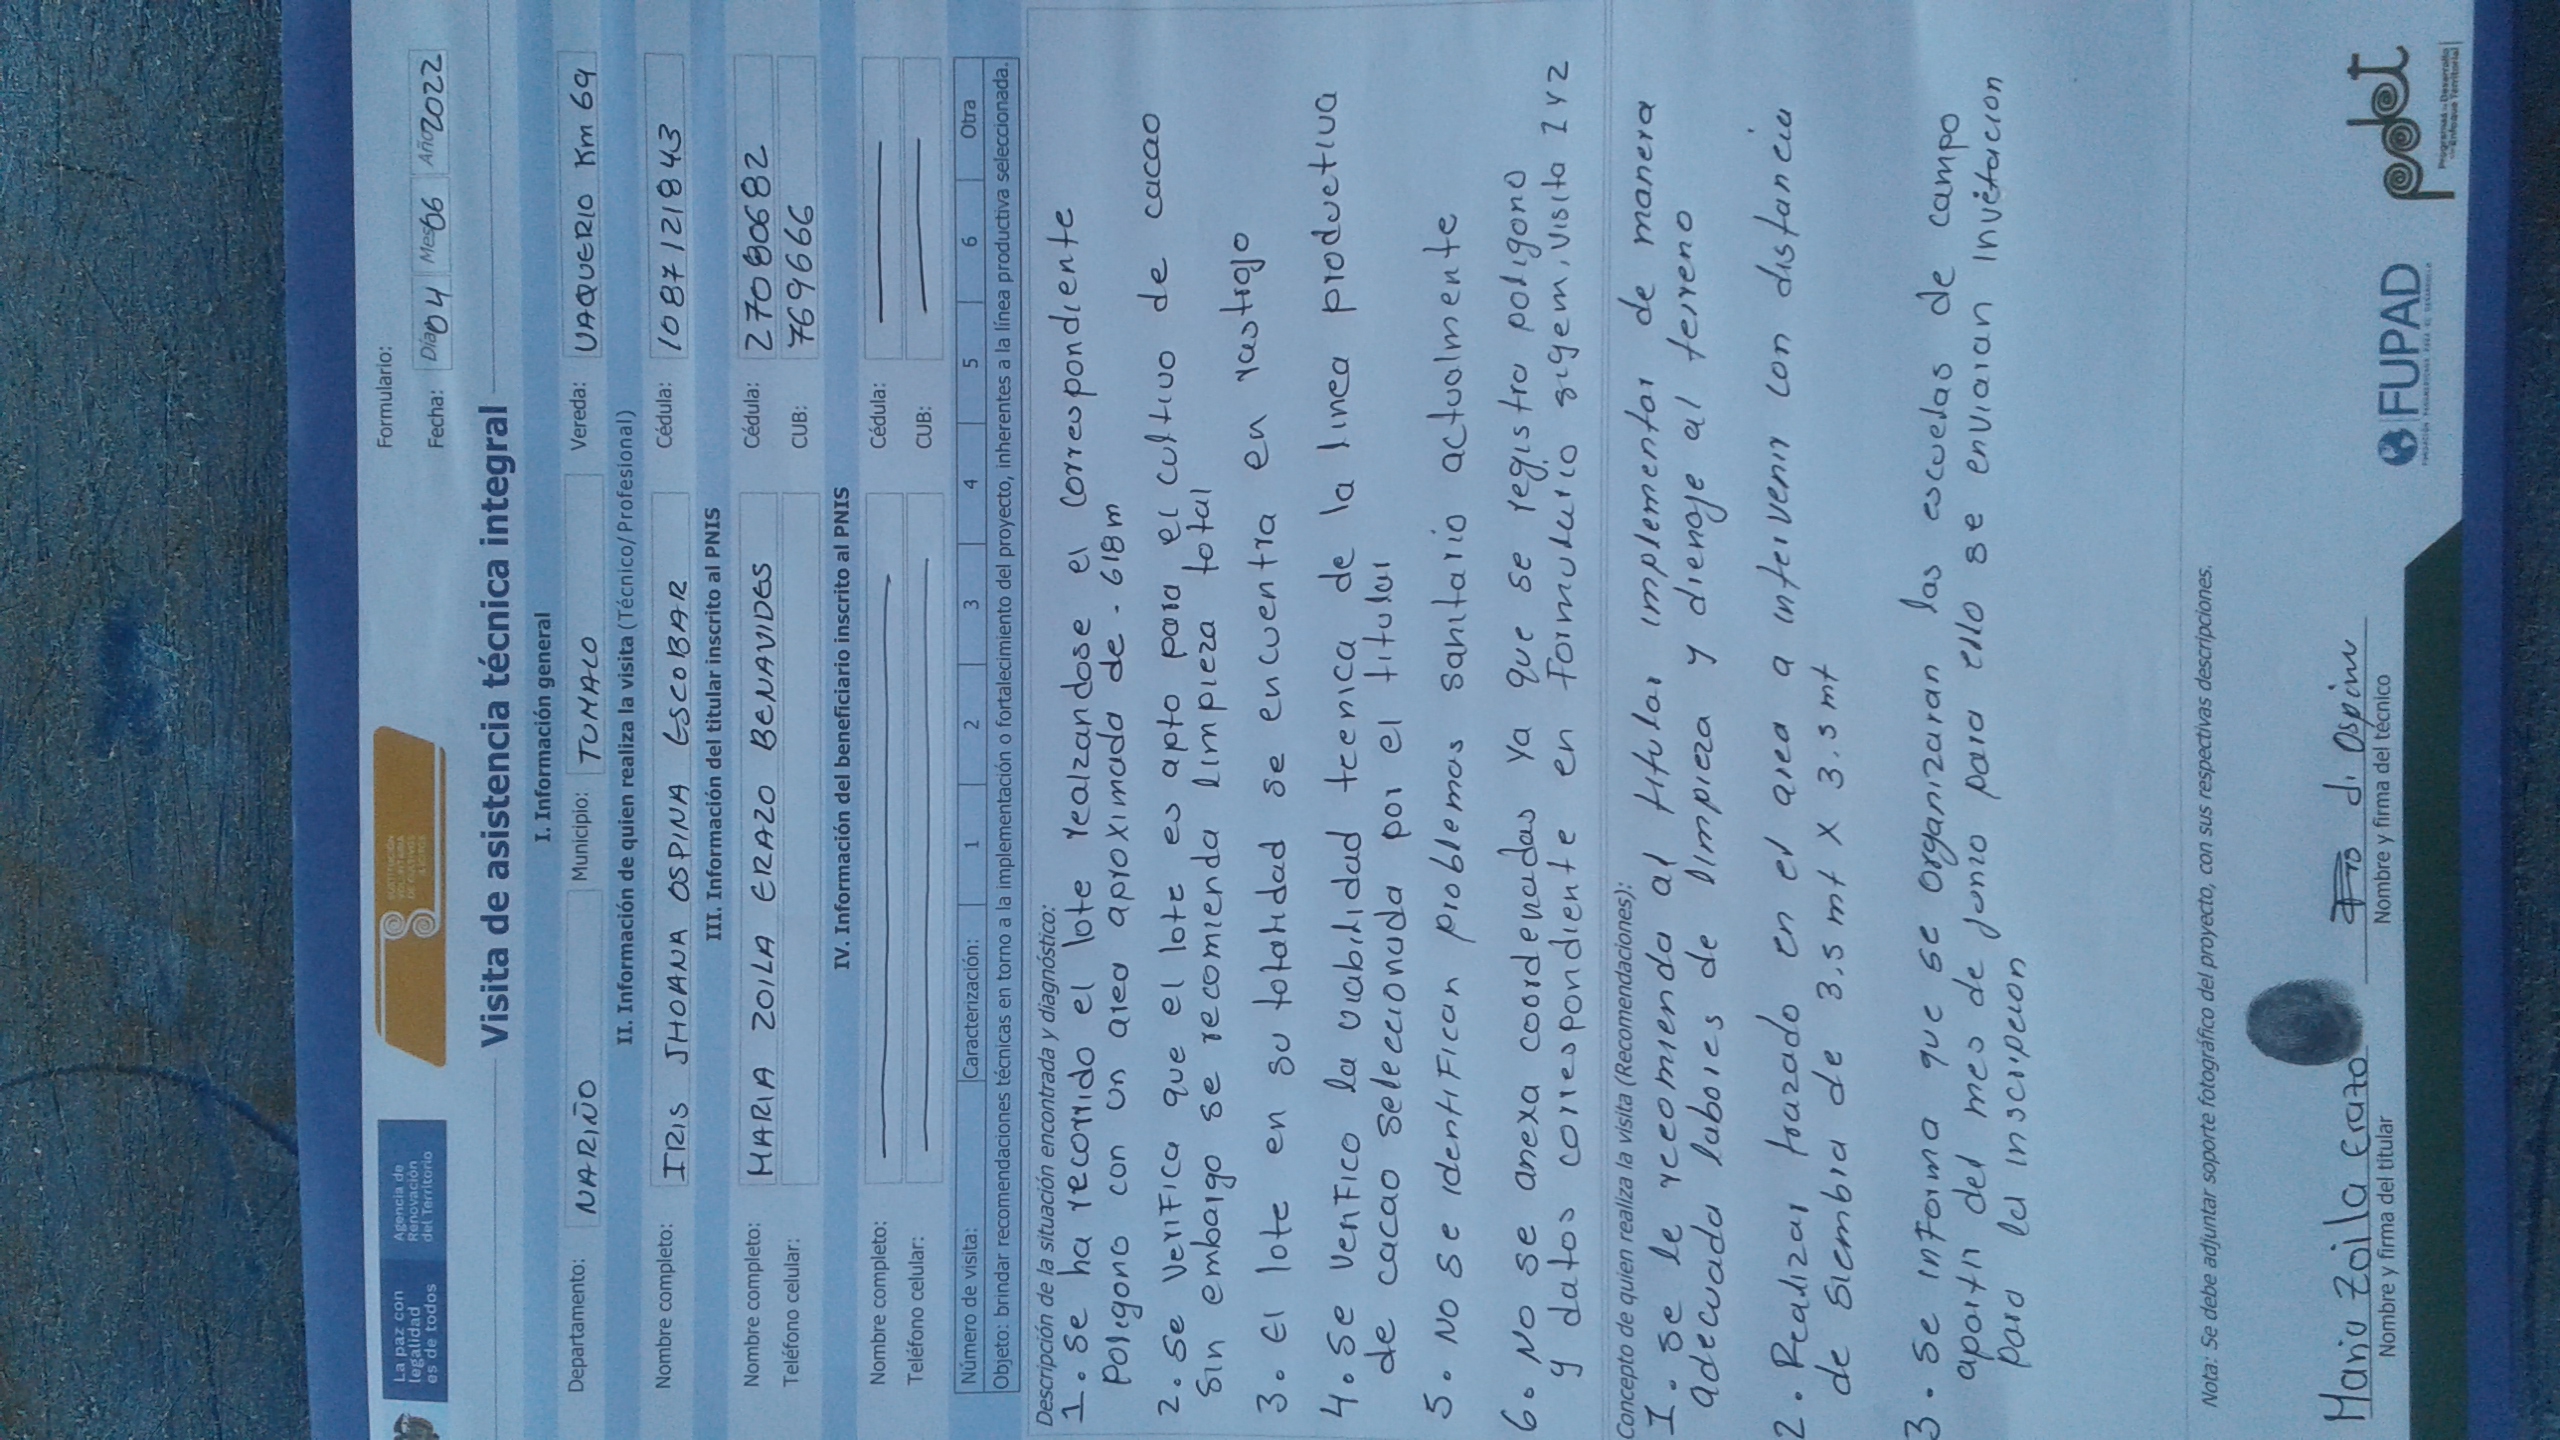 La paz con
legalidad
es de todos
Agencia de
Renovación
del Territorio
SUSTITUCIÓN
VOLUNTARIA
DE CULTIVOS
ILÍCITOS
Formulario:
Fecha: Día 04 Mes 06 Año 2022
Visita de asistencia técnica integral
I. Información general
Departamento: NARIÑO Municipio: TUMACO Vereda: VAQUERIO Km 69
II. Información de quien realiza la visita (Técnico/Profesional)
Nombre completo: IRIS JHOANA OSPINA ESCOBAR Cédula: 1087121843
III. Información del titular inscrito al PNIS
Nombre completo: MARIA ZOILA ERAZO BENAVIDES Cédula: 27080682
Teléfono celular: CUB: 769666
IV. Información del beneficiario inscrito al PNIS
Nombre completo: Cédula:
Teléfono celular: CUB:
Número de visita: Caracterización: 1 2 3 4 5 6 Otra
Objeto: brindar recomendaciones técnicas en torno a la implementación o fortalecimiento del proyecto, inherentes a la línea productiva seleccionada.
Descripción de la situación encontrada y diagnóstico:
1. se ha recorrido el lote realzandose el correspondiente
Poligono con un area aproximada de - 618m
2. se verifica que el lote es apto para el cultivo de cacao
sin embargo se recomienda limpieza total
3. el lote en su totalidad se encuentra en rastrojo
4. se verifico la viabilidad tecnica de la linea productiva
de cacao seleccionada por el titular
5. No se identifican problemas sanitario actualmente
6. No se anexa coordenadas ya que se registra poligono
y datos correspondiente en formulario sigem, visita 1 y 2
Concepto de quien realiza la visita (Recomendaciones):
I. se le recomienda al titular implementar de manera
adecuada labores de limpieza y drenaje al terreno
2. Realizar trazado en el area a intervenir con distancia
de siembra de 3.5 mt x 3.5 mt
3. se informa que se organizaran las escuelas de campo
apartir del mes de junio para ello se enviaran invitacion
para la inscripcion
Nota: Se debe adjuntar soporte fotográfico del proyecto, con sus respectivas descripciones.
Maria Zoila Erazo
Nombre y firma del titular
d. Ospina
Nombre y firma del técnico
FUPAD
FUNDACIÓN PANAMERICANA PARA EL DESARROLLO
pdet
Programas de Desarrollo
con Enfoque Territorial